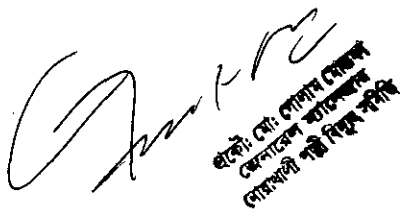 প্রকৌ: মো: গোলাম মোস্তফা
জেনারেল ম্যানেজার
নোয়াখালী পল্লী বিদ্যুৎ সমিতি